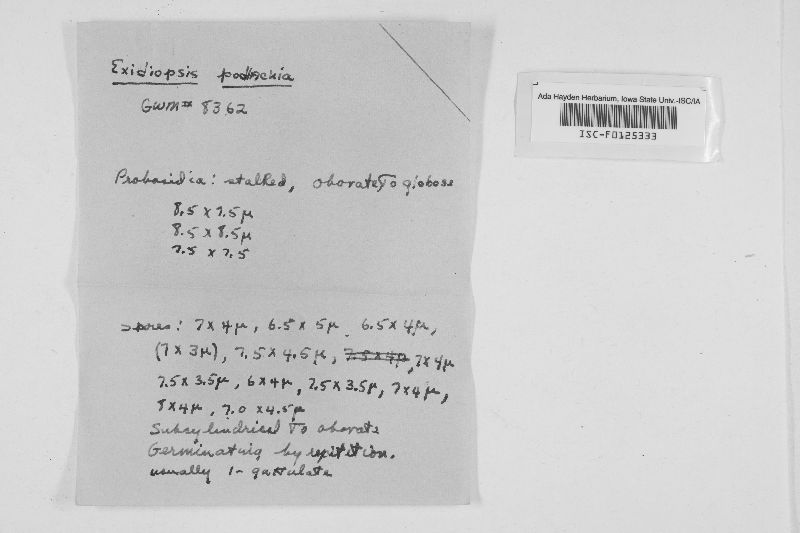 Exidiopsis podlachia
GWM# 8362
Probasidia: stalked, obovate to globose
8.5 x 7.5 µ
8.5 x 8.5 µ
7.5 x 7.5
spores: 7 x 4 µ, 6.5 x 5 µ, 6.5 x 4 µ,
(7 x 3 µ), 7.5 x 4.5 µ, 7.5 x 4 µ, 7 x 4 µ
7.5 x 3.5 µ, 6 x 4 µ, 7.5 x 3.5 µ, 7 x 4 µ,
8 x 4 µ, 7.0 x 4.5 µ
Subcylindrical to obovate
Germinating by repitition.
usually 1-guttulate
Ada Hayden Herbarium, Iowa State Univ.-ISC/IA
ISC-F0125333